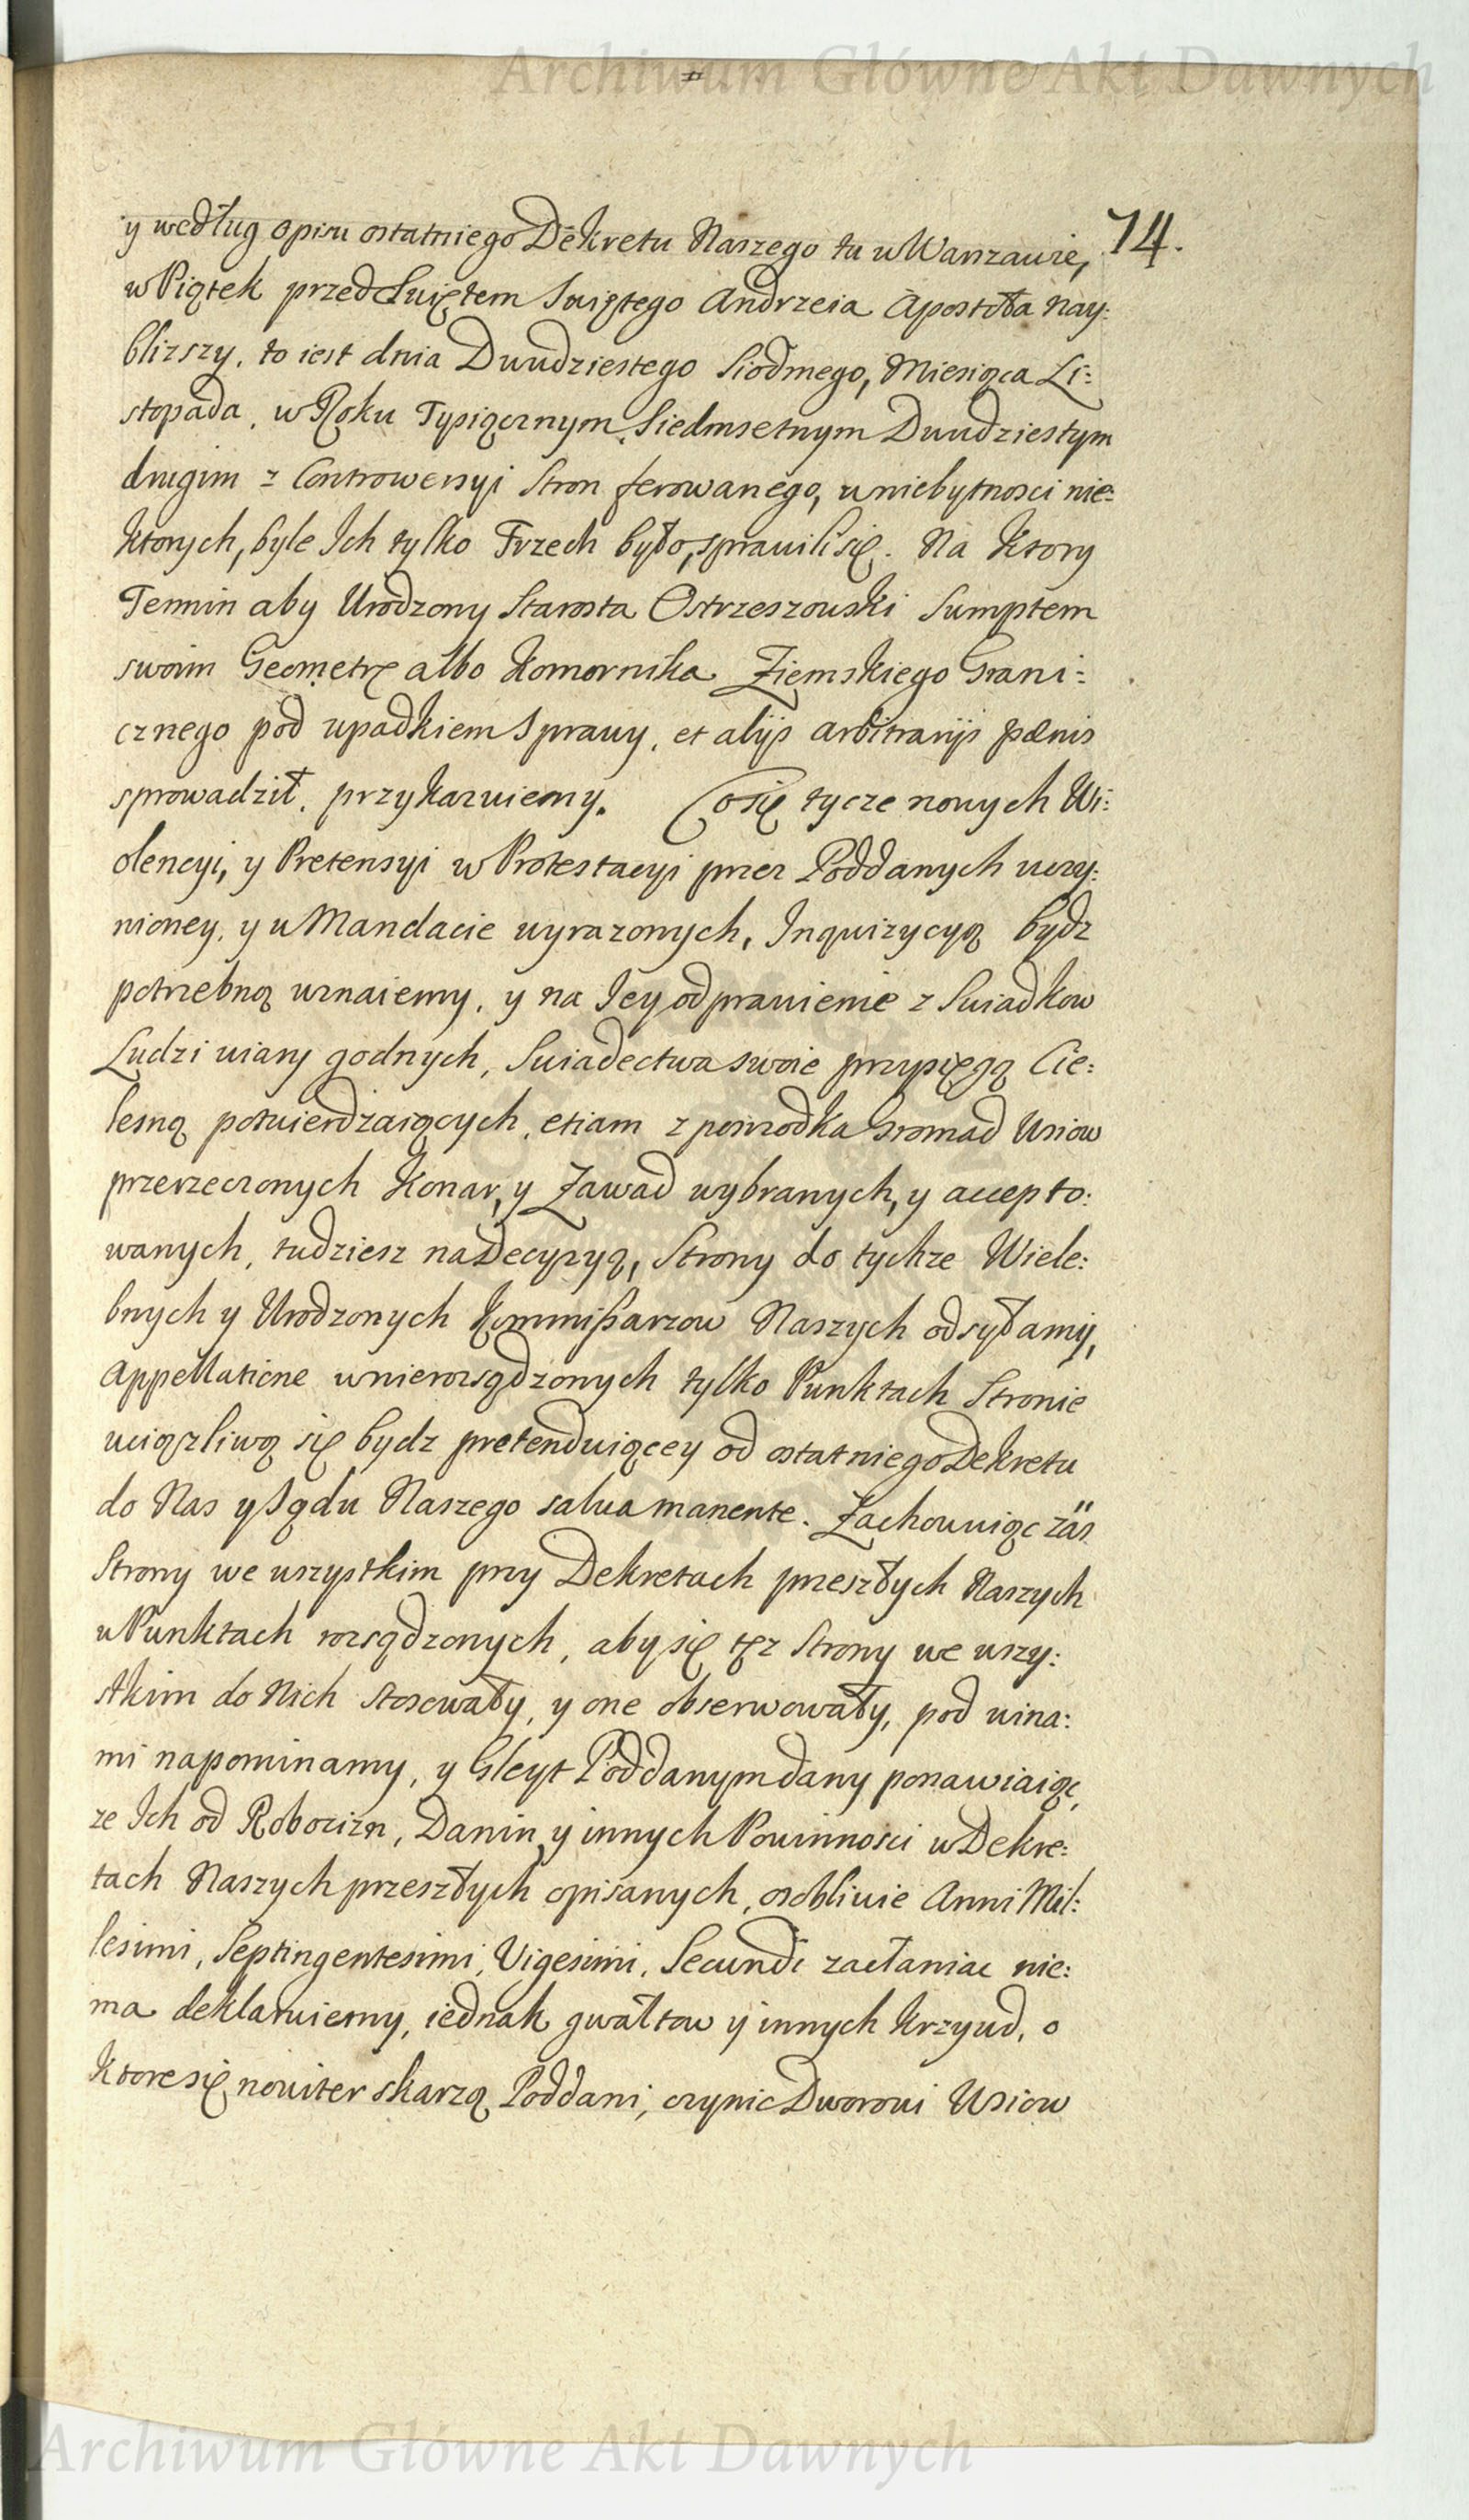 Archiwum Główne Akt Dawnych
74.
y według opisu ostatniego Dekretu Naszego tu w Warszawie,
w Piątek przed Swiętem Swiętego Andrzeia Apostoła nay:
blizszy, to iest dnia Dwudziestego Siodmego, Miesiąca Li:
stopada, w Roku Tysiącznym Siedmsetnym Dwudziestym
drugim z Controwersyi Stron ferowanego, w niebytnosci nie:
ktorych, byle Ich tylko Trzech było, sprawili się. Na ktory
Termin aby Urodzony Starosta Ostrzeszowski Sumptem
swoim Geometrę albo Komornika Ziemskiego Grani:
cznego pod upadkiem Sprawy, et alijs arbitrarijs pœnis
sprowadził, przykazuiemy. Co się tycze nowych Wi:
olencyi, y Pretensyi w Protestacyi przez Poddanych uczy:
nioney, y w Mandacie wyrazonych, Inquizycyą bydz
potrzebną uznaiemy, y na Iey odprawienie z Swiadkow
Ludzi wiary godnych, Swiadectwa swoie przysięgą Cie:
lesną potwierdzaiących, etiam z posrzodka Gromad Wsiow
przerzeczonych Konar, y Zawad wybranych, y accepto:
wanych, tudziesz na Decyzyą, Strony do tychze Wiele:
bnych y Urodzonych Kommißarzow Naszych odsyłamy,
Appellatione w nierozsądzonych tylko Punktach Stronie
uciązliwą się bydz pretenduiącey od ostatniego Dekretu
do Nas y Sądu Naszego salva manente. Zachowuiąc zás
Strony we wszystkim przy Dekretach przeszłych Naszych
w Punktach rozsądzonych, aby się tez Strony we wszy:
stkim do Nich stosowały, y one obserwowały, pod wina:
mi napominamy, y Gleyt Poddanym dany ponawiaiąc,
ze Ich od Robocizn, Danin, y innych Powinnosci w Dekre:
tach Naszych przeszłych opisanych, osobliwie Anni Mil:
lesimi, Septingentesimi, Vigesimi, Secundi zasłaniac nie:
ma deklaruiemy, iednak gwałtow y innych krzywd, o
ktore się noviter skarzą Poddani, czynic Dworowi Wsiow
Archiwum Główne Akt Dawnych